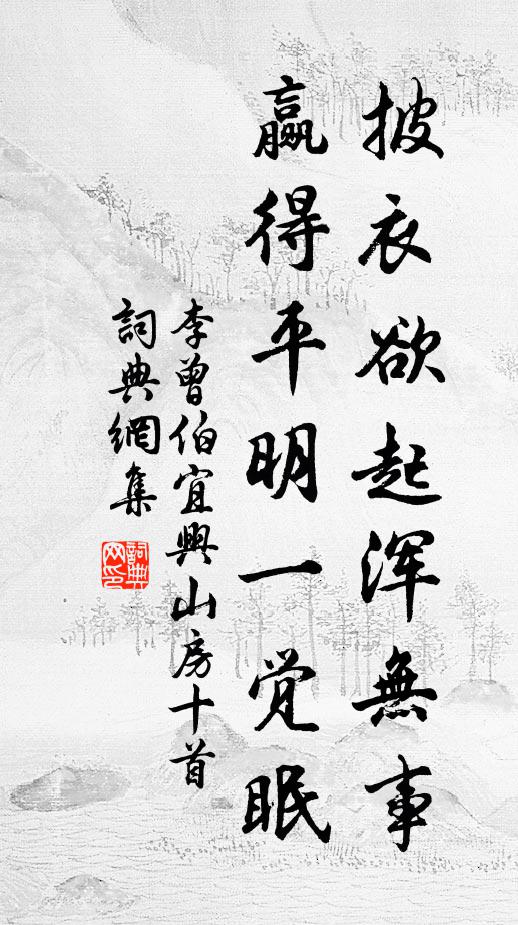 披衣欲起浑無事
贏得平明一觉眠
李曾伯宜興山房十首
詞典網集
詞典网印